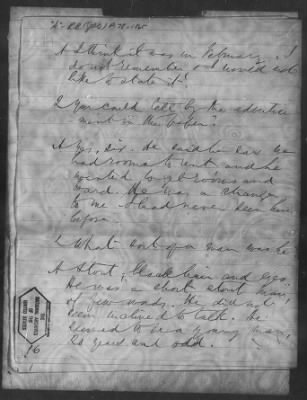 A I think it was in February. I
do not remember & would not
like to state it.
Q You could tell by the advertise
ment in the paper?
A Yes, sir. He said he saw we
had rooms to rent and he
wanted to get rooms and
board. He was a stranger
to me I had never seen him
before.
Q What sort of a man was he
A Stout, black hair and eyes
He was a short stout man,
of few words. He did not
seem inclined to talk. He
seemed to be a young man,
20 years and odd.
16